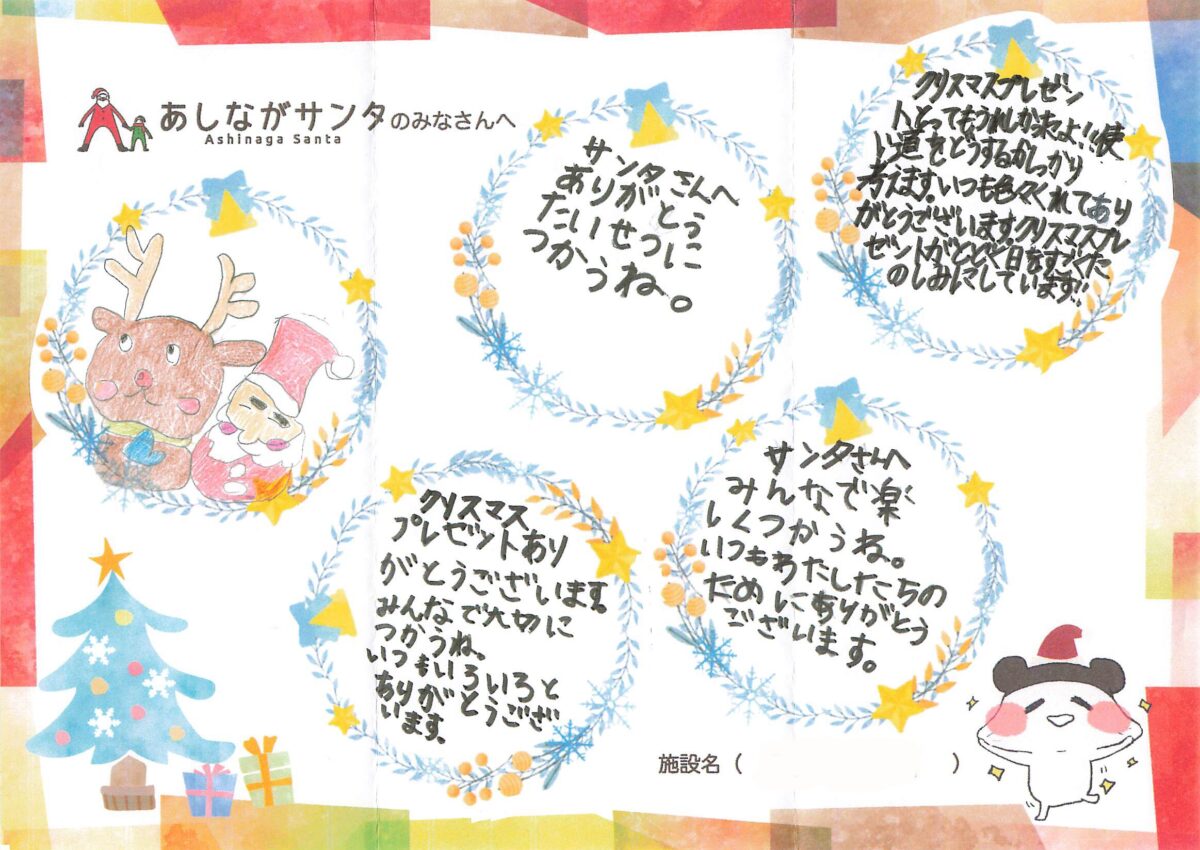 あしながサンタのみなさんへ
Ashinaga Santa
サンタさんへ
ありがとう
たいせつに
つかうね。
クリスマスプレゼン
トとってもうれしかったよ!!使
い道をどうするかしっかり
考えます。いつも色々くれてあり
がとうございます。クリスマスプレ
ゼントがとどく日をすごくた
のしみにしています!!
クリスマス
プレゼットあり
がとうございます。
みんなで大切に
つかうね。
いつもいろいろと
ありがとうござい
います。
サンタさんへ
みんなで楽
しくつかうね。
いつもわたしたちの
ためにありがとう
ございます。
施設名( )